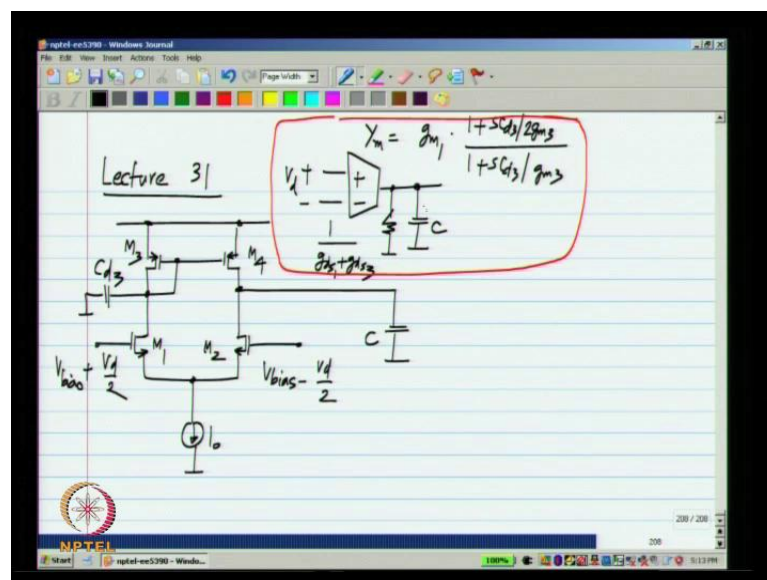 nptel-ee5390 - Windows Journal
File Edit View Insert Actions Tools Help
Page Width
B I
Lecture 31
Ym = gm1 · 1 + sCd3/2gm3
1 + sCd3/gm3
Vd + +
- -
1
gds1 + gds3
C
M3
M4
Cd3
C
M1
M2
Vbias + Vd/2
Vbias - Vd/2
I0
NPTEL
208 / 208
208
Start
nptel-ee5390 - Windo...
100%
5:13 PM